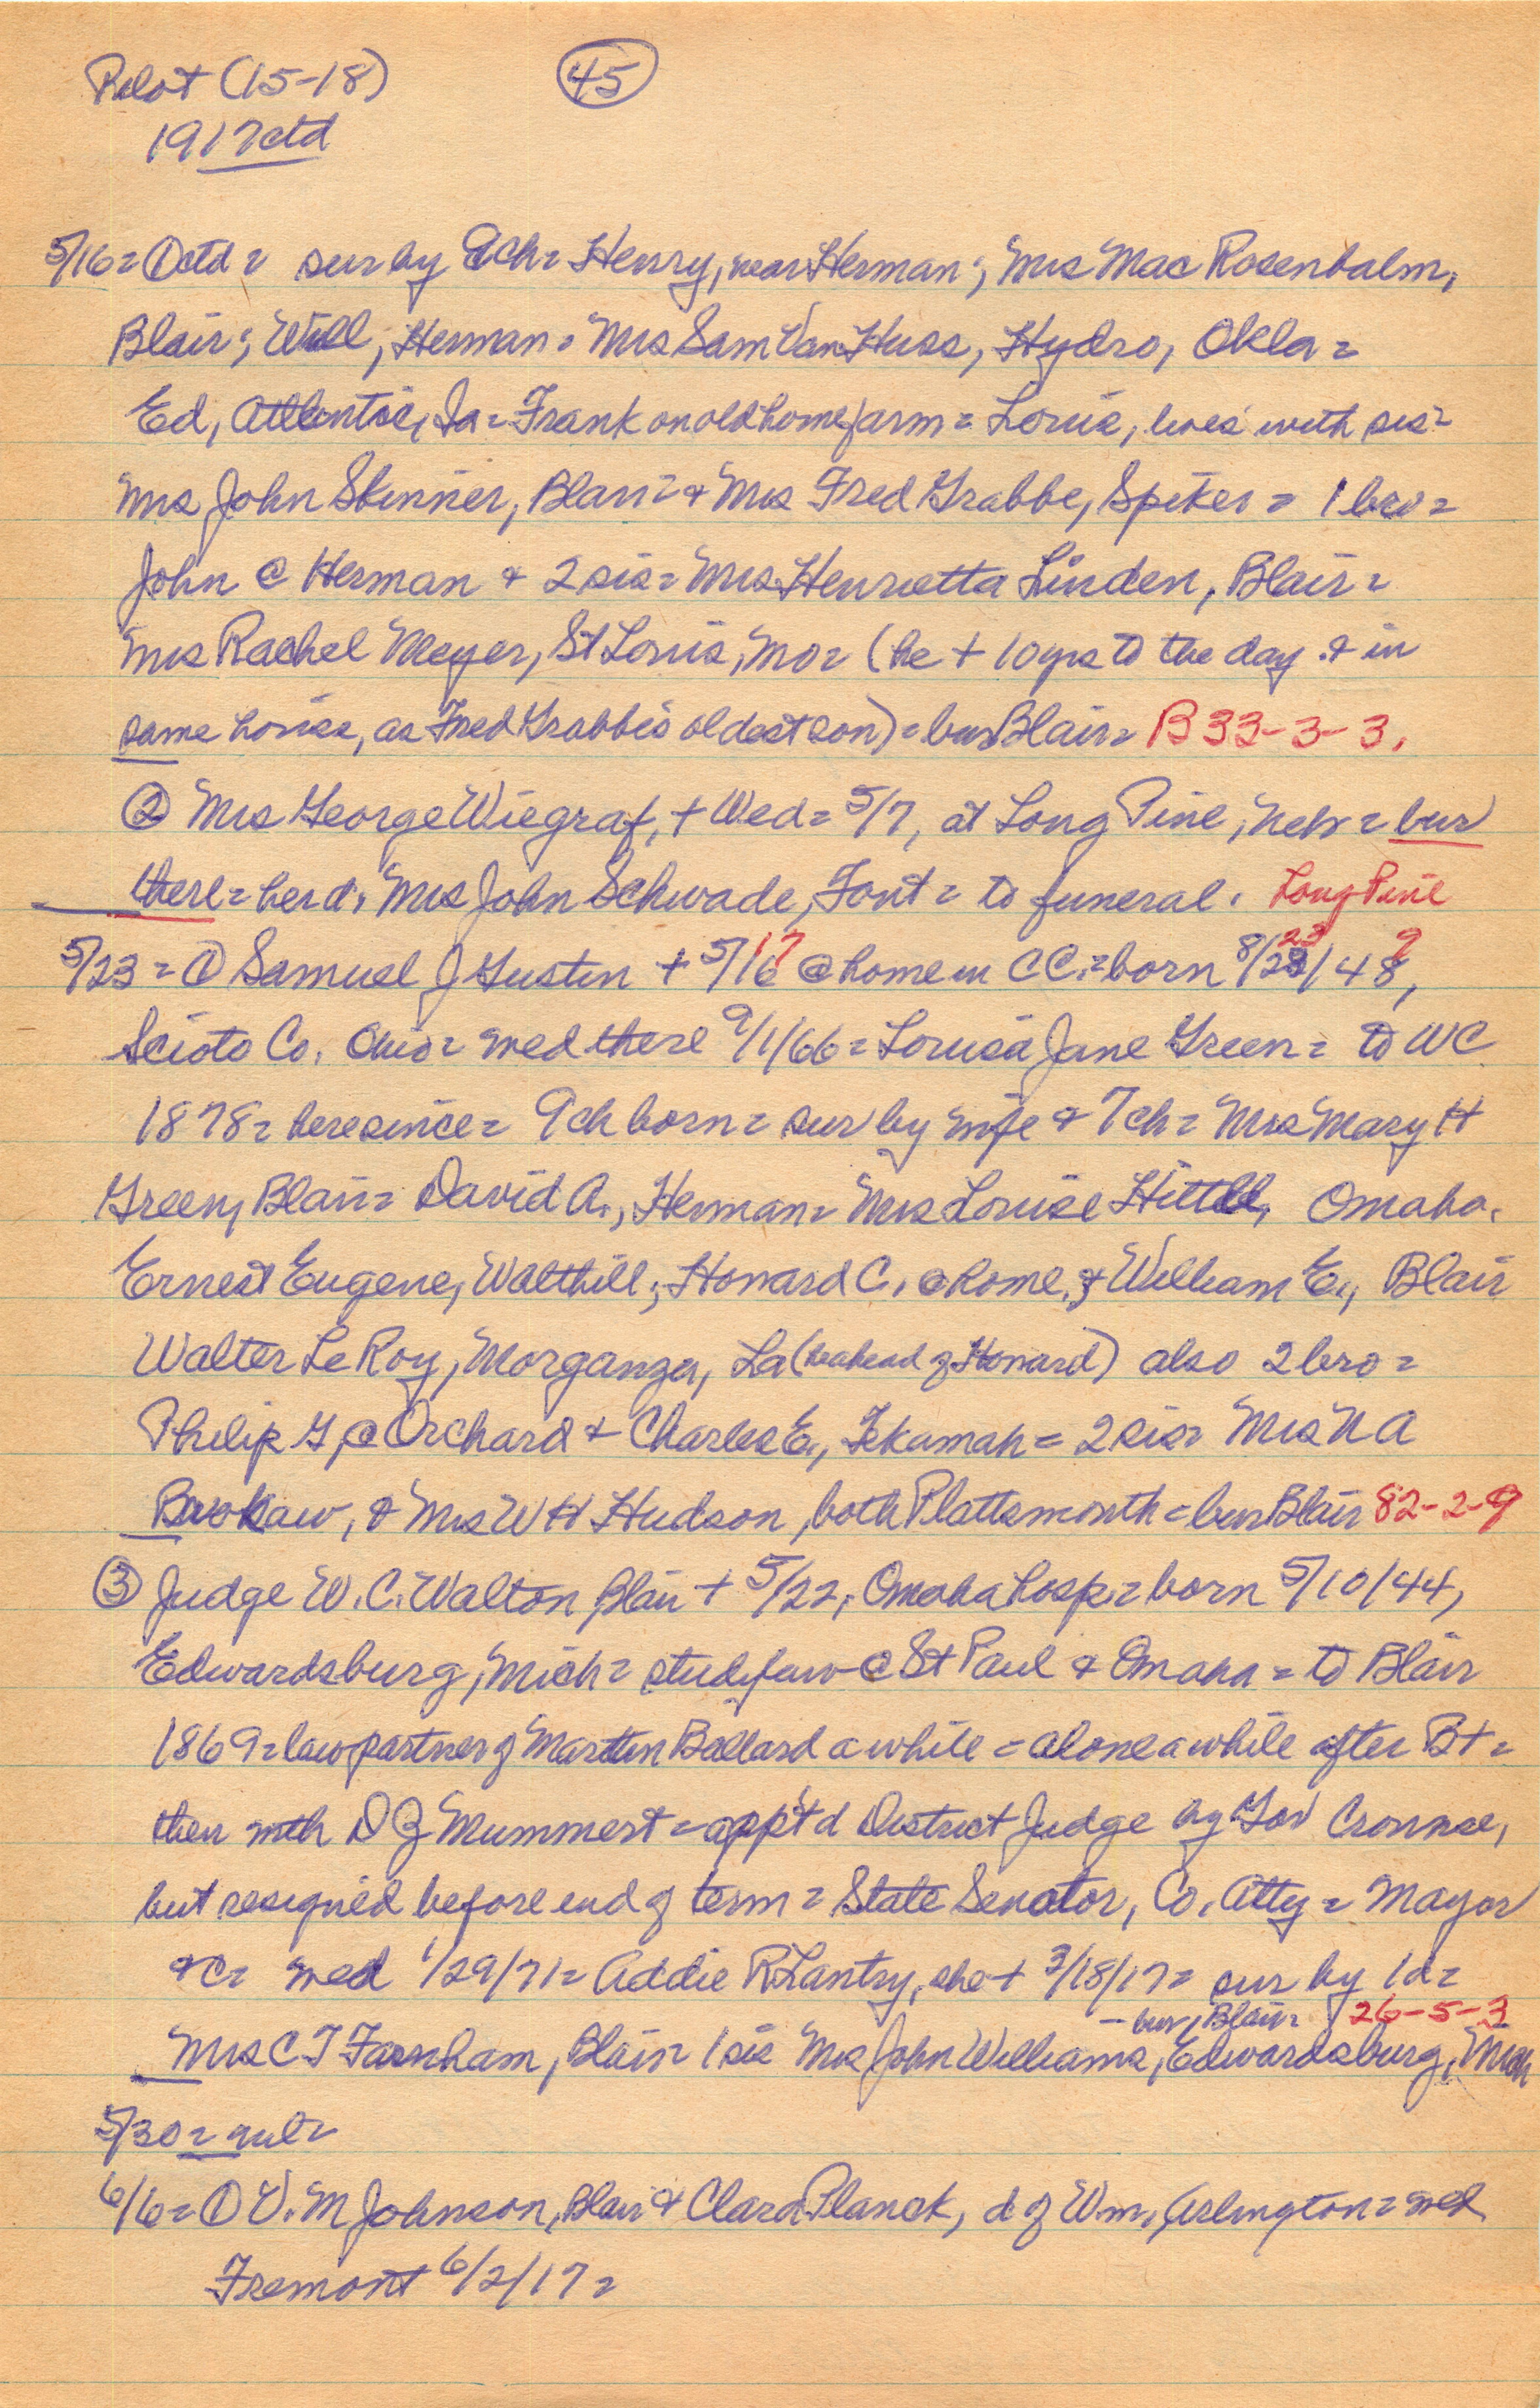 Pilot (15-18) 45
1917 ctd
5/16 = ① ctd = sur by 9 ch = Henry, near Herman; Mrs Mac Rosenbalm,
Blair; Will, Herman = Mrs Sam Van Huss, Hydro, Okla =
Ed, Atlantic, Ia = Frank on old home farm = Louis, lives with sis =
Mrs John Skinner, Blair = & Mrs Fred Grabbe, Spiker = 1 bro =
John @ Herman & 2 sis = Mrs Henrietta Linden, Blair =
Mrs Rachel Meyer, St Louis, Mo = (he + 10 yrs to the day & in
same house, as Fred Grabbe's oldest son) = bur Blair = B 33-3-3.
② Mrs George Wiegraf, + Wed = 5/7, at Long Pine, Nebr = bur
there = her d, Mrs John Schwade, Font = to funeral. Long Pine
5/23 = ① Samuel J Gustin + 5/16 17 @ home in CC = born 8/28 23/48 9,
Scioto Co. Ohio = wed there 9/1/66 = Louisa Jane Green = to WC
1878 = here since = 9 ch born = sur by wife & 7 ch = Mrs Mary H
Green, Blair = David A., Herman = Mrs Louise Hittle, Omaha.
Ernest Eugene, Walthill; Howard C. @ home, & William E., Blair
Walter LeRoy, Morganza, La (he ahead of Howard) also 2 bro =
Philip G, @ Orchard & Charles E., Tekamah = 2 sis = Mrs N A
Brokaw, & Mrs W H Hudson, both Plattsmouth = bur Blair 82-2-9
③ Judge W. C. Walton, Blair + 5/22, Omaha hosp = born 5/10/44,
Edwardsburg, Mich = study law @ St Paul & Omaha = to Blair
1869 = law partner of Martin Ballard awhile = alone awhile after B+ =
then with D Z Mummert = appt'd District Judge by Gov Crounse,
but resigned before end of term = State Senator, Co. Atty = Mayor
&c = wed 1/29/71 = Addie R Lantry, she + 3/18/17 = sur by 1 d =
— bur, Blair = 26-5-3
Mrs C T Farnham, Blair = 1 sis Mrs John Williams, Edwardsburg, Mich
5/30 = nil =
6/6 = ① V. M Johnson, Blair & Clara Planck, d of Wm, Arlington = wed
Fremont 6/2/17 =